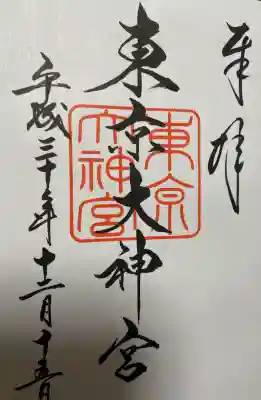 奉拝
東京大神宮
東京大神宮
平成三十年十二月十五日